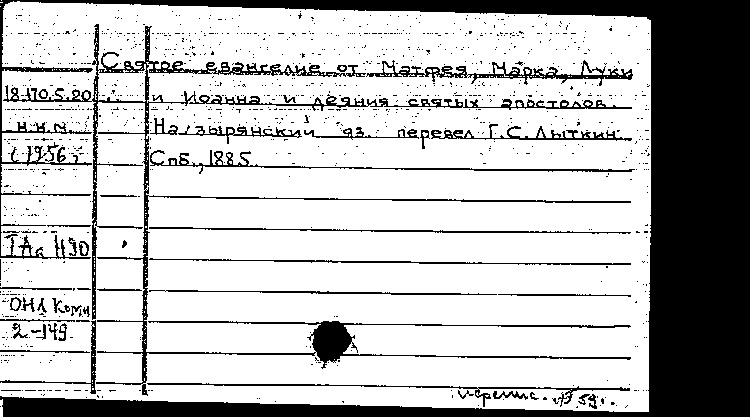 Святое евангелие от Матфея, Марка, Луки
18.170.5.20
и Иоанна и деяния святых апостолов.
н.н.м.
На/зырянский яз. перевел Г.С. Лыткин
с 1956 г
Спб., 1885.
ОНЛ Коми
2-149